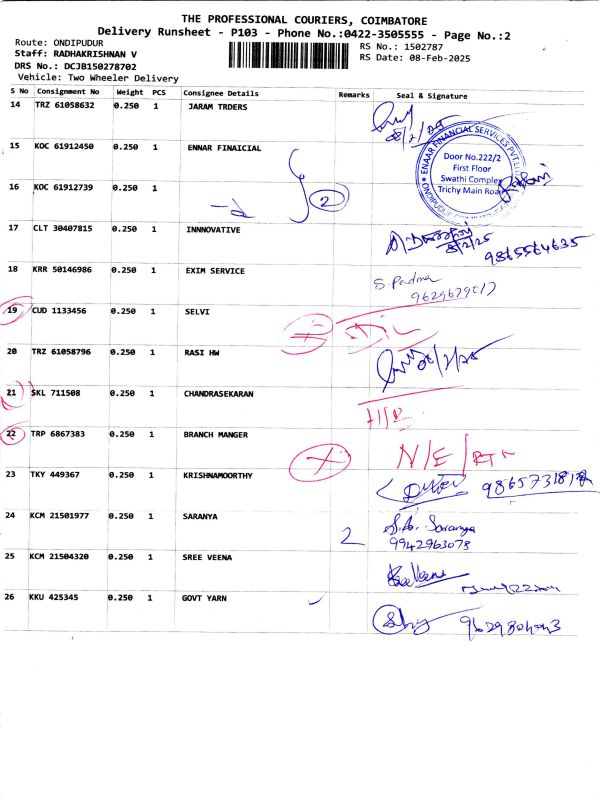 THE PROFESSIONAL COURIERS, COIMBATORE
Delivery Runsheet - P103 - Phone No.:0422-3505555 - Page No.:2
Route: ONDIPUDUR
RS No.: 1502787
Staff: RADHAKRISHNAN V
RS Date: 08-Feb-2025
DRS No.: DCJB150278702
Vehicle: Two Wheeler Delivery
S No Consignment No Weight PCS Consignee Details Remarks Seal & Signature
14 TRZ 61058632 0.250 1 JARAM TRDERS
8/2/25
15 KOC 61912450 0.250 1 ENNAR FINAICIAL
ENAAR FINANCIAL SERVICES PVT LTD
Door No.222/2
First Floor
Swathi Complex
Trichy Main Road
ONDIPUDUR
16 KOC 61912739 0.250 1 2
17 CLT 30407815 0.250 1 INNNOVATIVE
8/2/25 9865564635
18 KRR 50146986 0.250 1 EXIM SERVICE
S. Padma
19 CUD 1133456 0.250 1 SELVI D/L
20 TRZ 61058796 0.250 1 RASI HW
21 SKL 711508 0.250 1 CHANDRASEKARAN
22 TRP 6867383 0.250 1 BRANCH MANGER N/E/RTN
23 TKY 449367 0.250 1 KRISHNAMOORTHY
24 KCM 21501977 0.250 1 SARANYA 2 Saranya
9942963073
25 KCM 21504320 0.250 1 SREE VEENA SreeVeena
26 KKU 425345 0.250 1 GOVT YARN